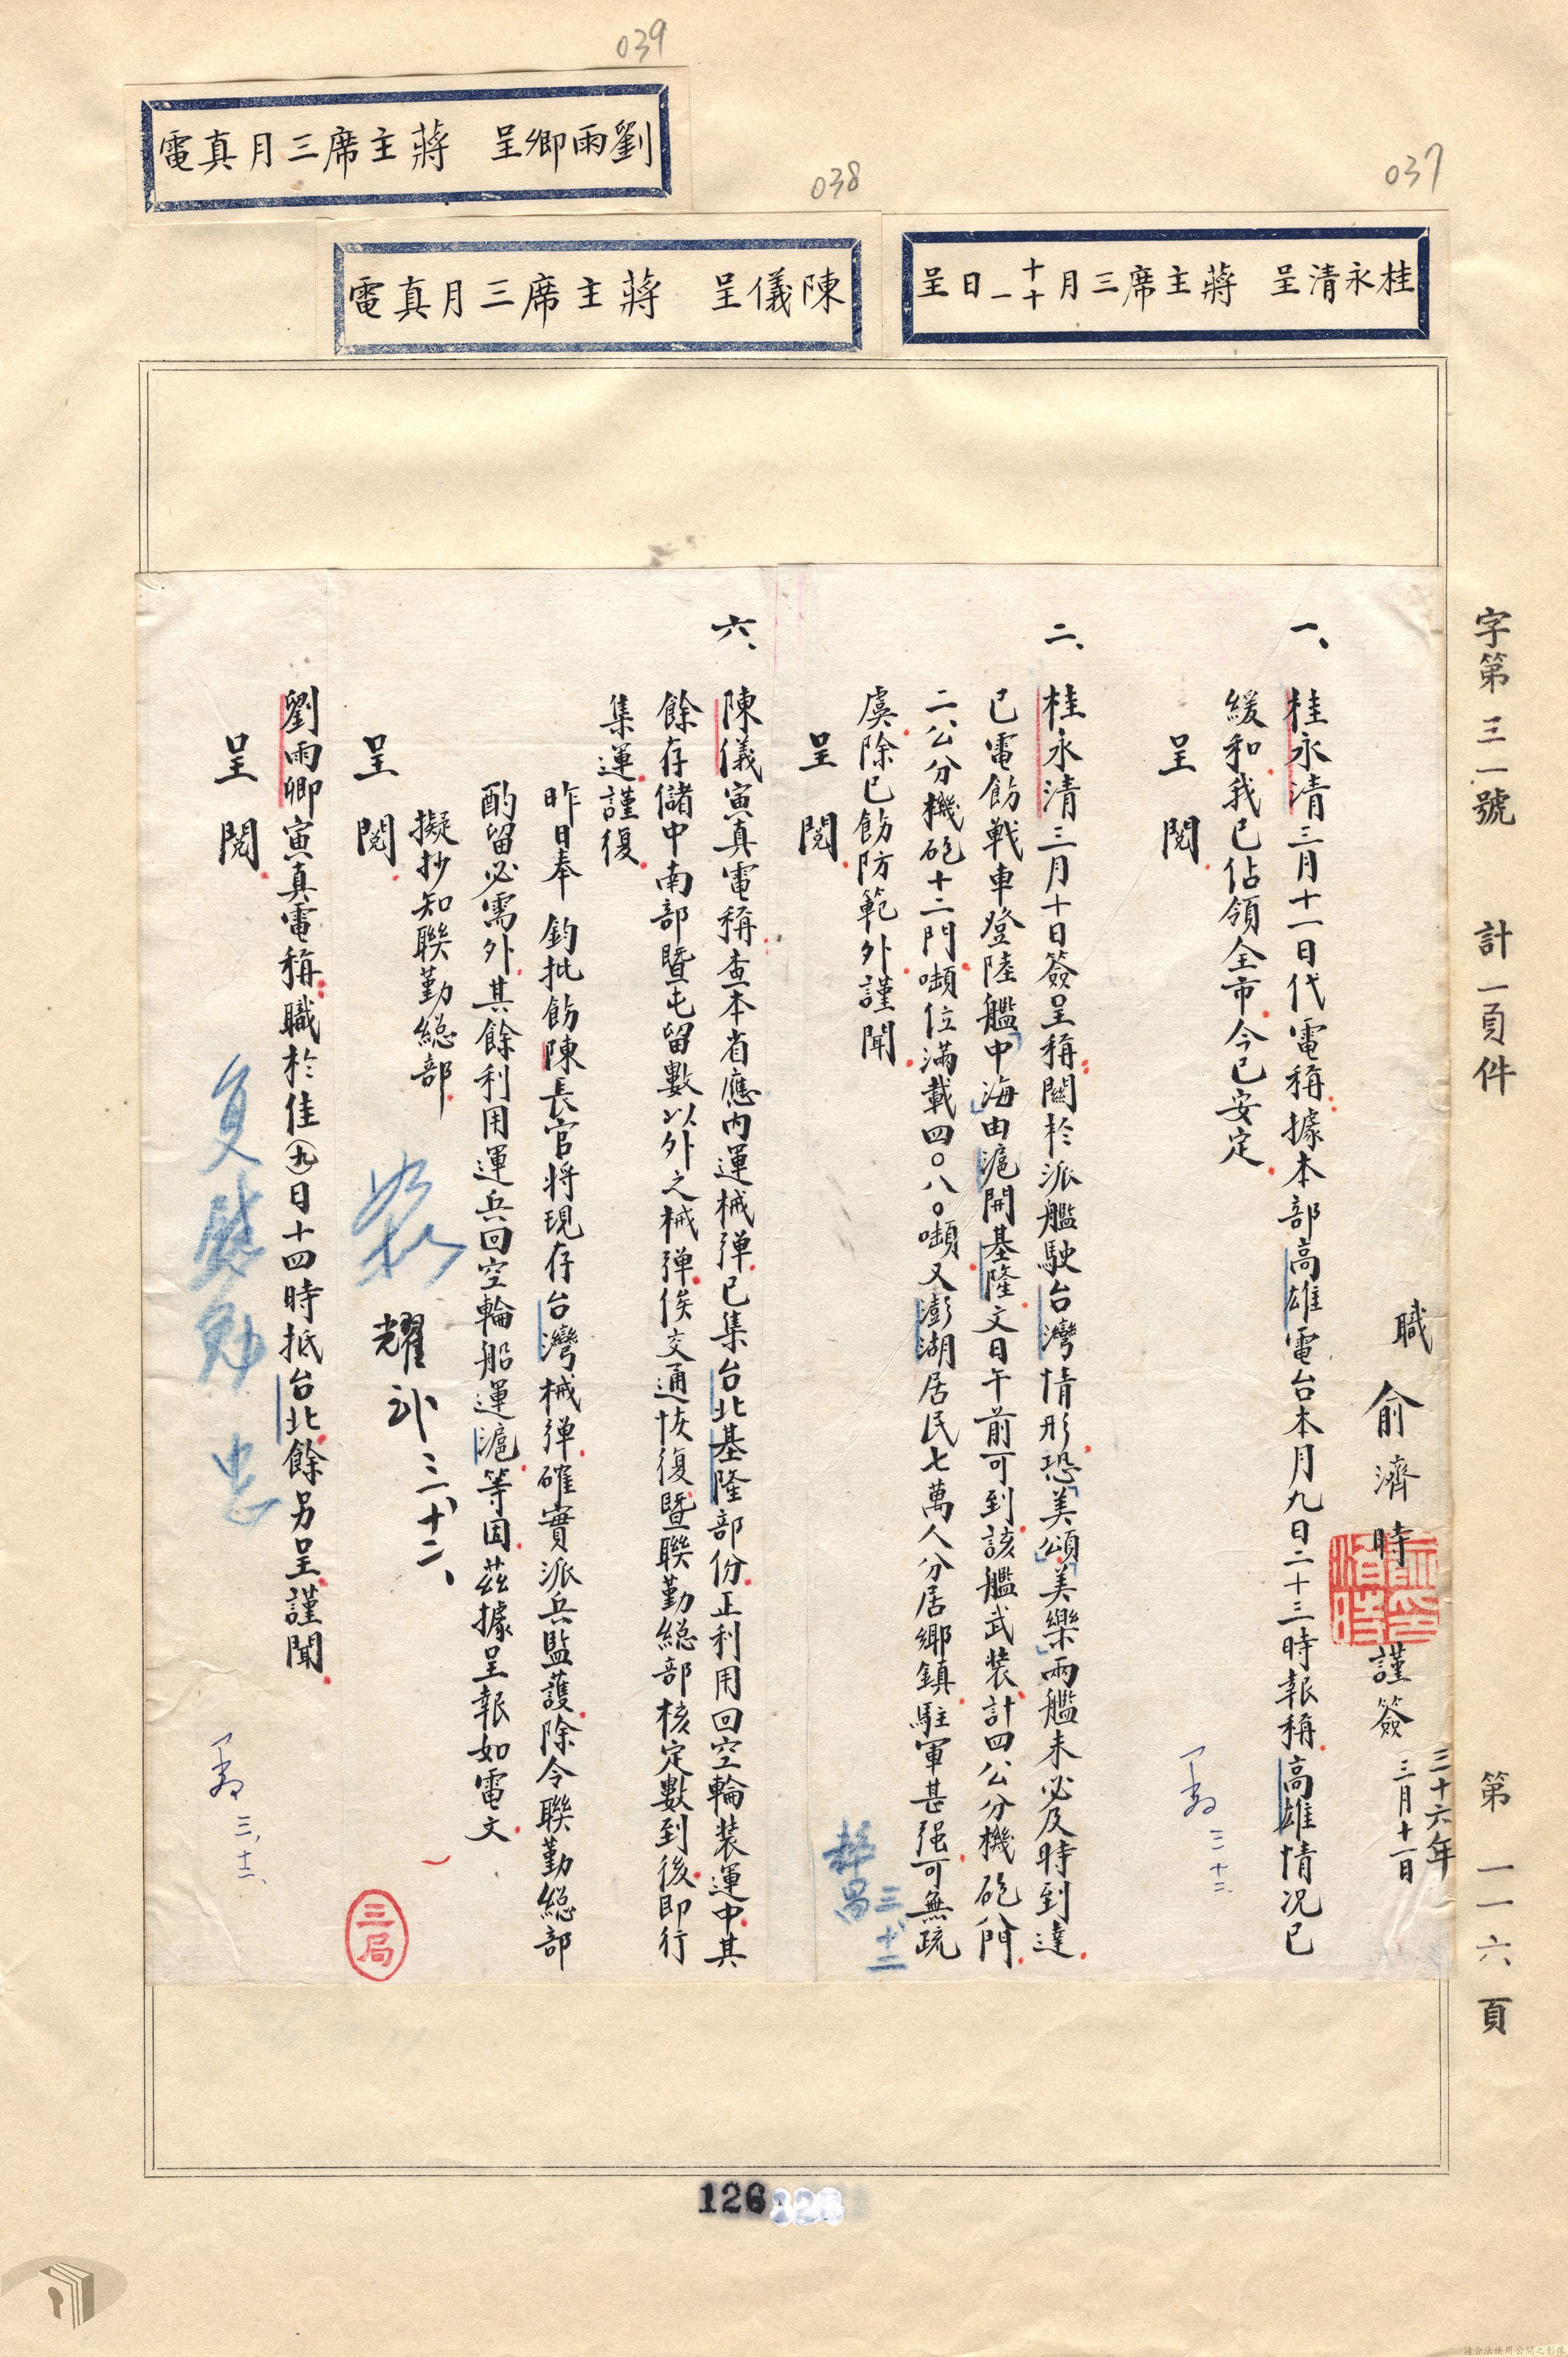 039
劉雨卿呈 蔣主席三月真電
038
陳儀呈 蔣主席三月真電
037
桂永清呈 蔣主席三月十十一日呈
字第三一號 計一頁件 第一一六頁
職 俞濟時 謹簽 三十六年三月十一日
一、桂永清三月十一日代電稱據本部高雄電台本月九日二十三時報稱高雄情況已
緩和我已佔領全市今已安定
呈閱
三、十二
二、桂永清三月十日簽呈稱關於派艦駛台灣情形恐「美頌」「美樂」兩艦未必及時到達
已電飭戰車登陸艦「中海」由滬開基隆文日午前可到該艦武裝計四公分機砲八門
二公分機砲十二門噸位滿載四〇八〇噸又澎湖居民七萬人分居鄉鎮駐軍甚强可無疏
虞除已飭防範外謹聞
呈閱
三、十二
六、陳儀寅真電稱查本省應內運械彈已集台北基隆部份正利用回空輪裝運中其
餘存儲中南部暨屯留數以外之械彈俟交通恢復暨聯勤総部核定數到後即行
集運謹復
昨日奉 鈞批飭陳長官將現存台灣械彈確實派兵監護除令聯勤総部
酌留必需外其餘利用運兵回空輪船運滬等因茲據呈報如電文
擬抄知聯勤総部
呈閱
耀 三、十二、
三局
劉雨卿寅真電稱職於佳(九)日十四時抵台北餘另呈謹聞
呈閱
復慰勉
三、十二、
126
請合法使用公開之影像